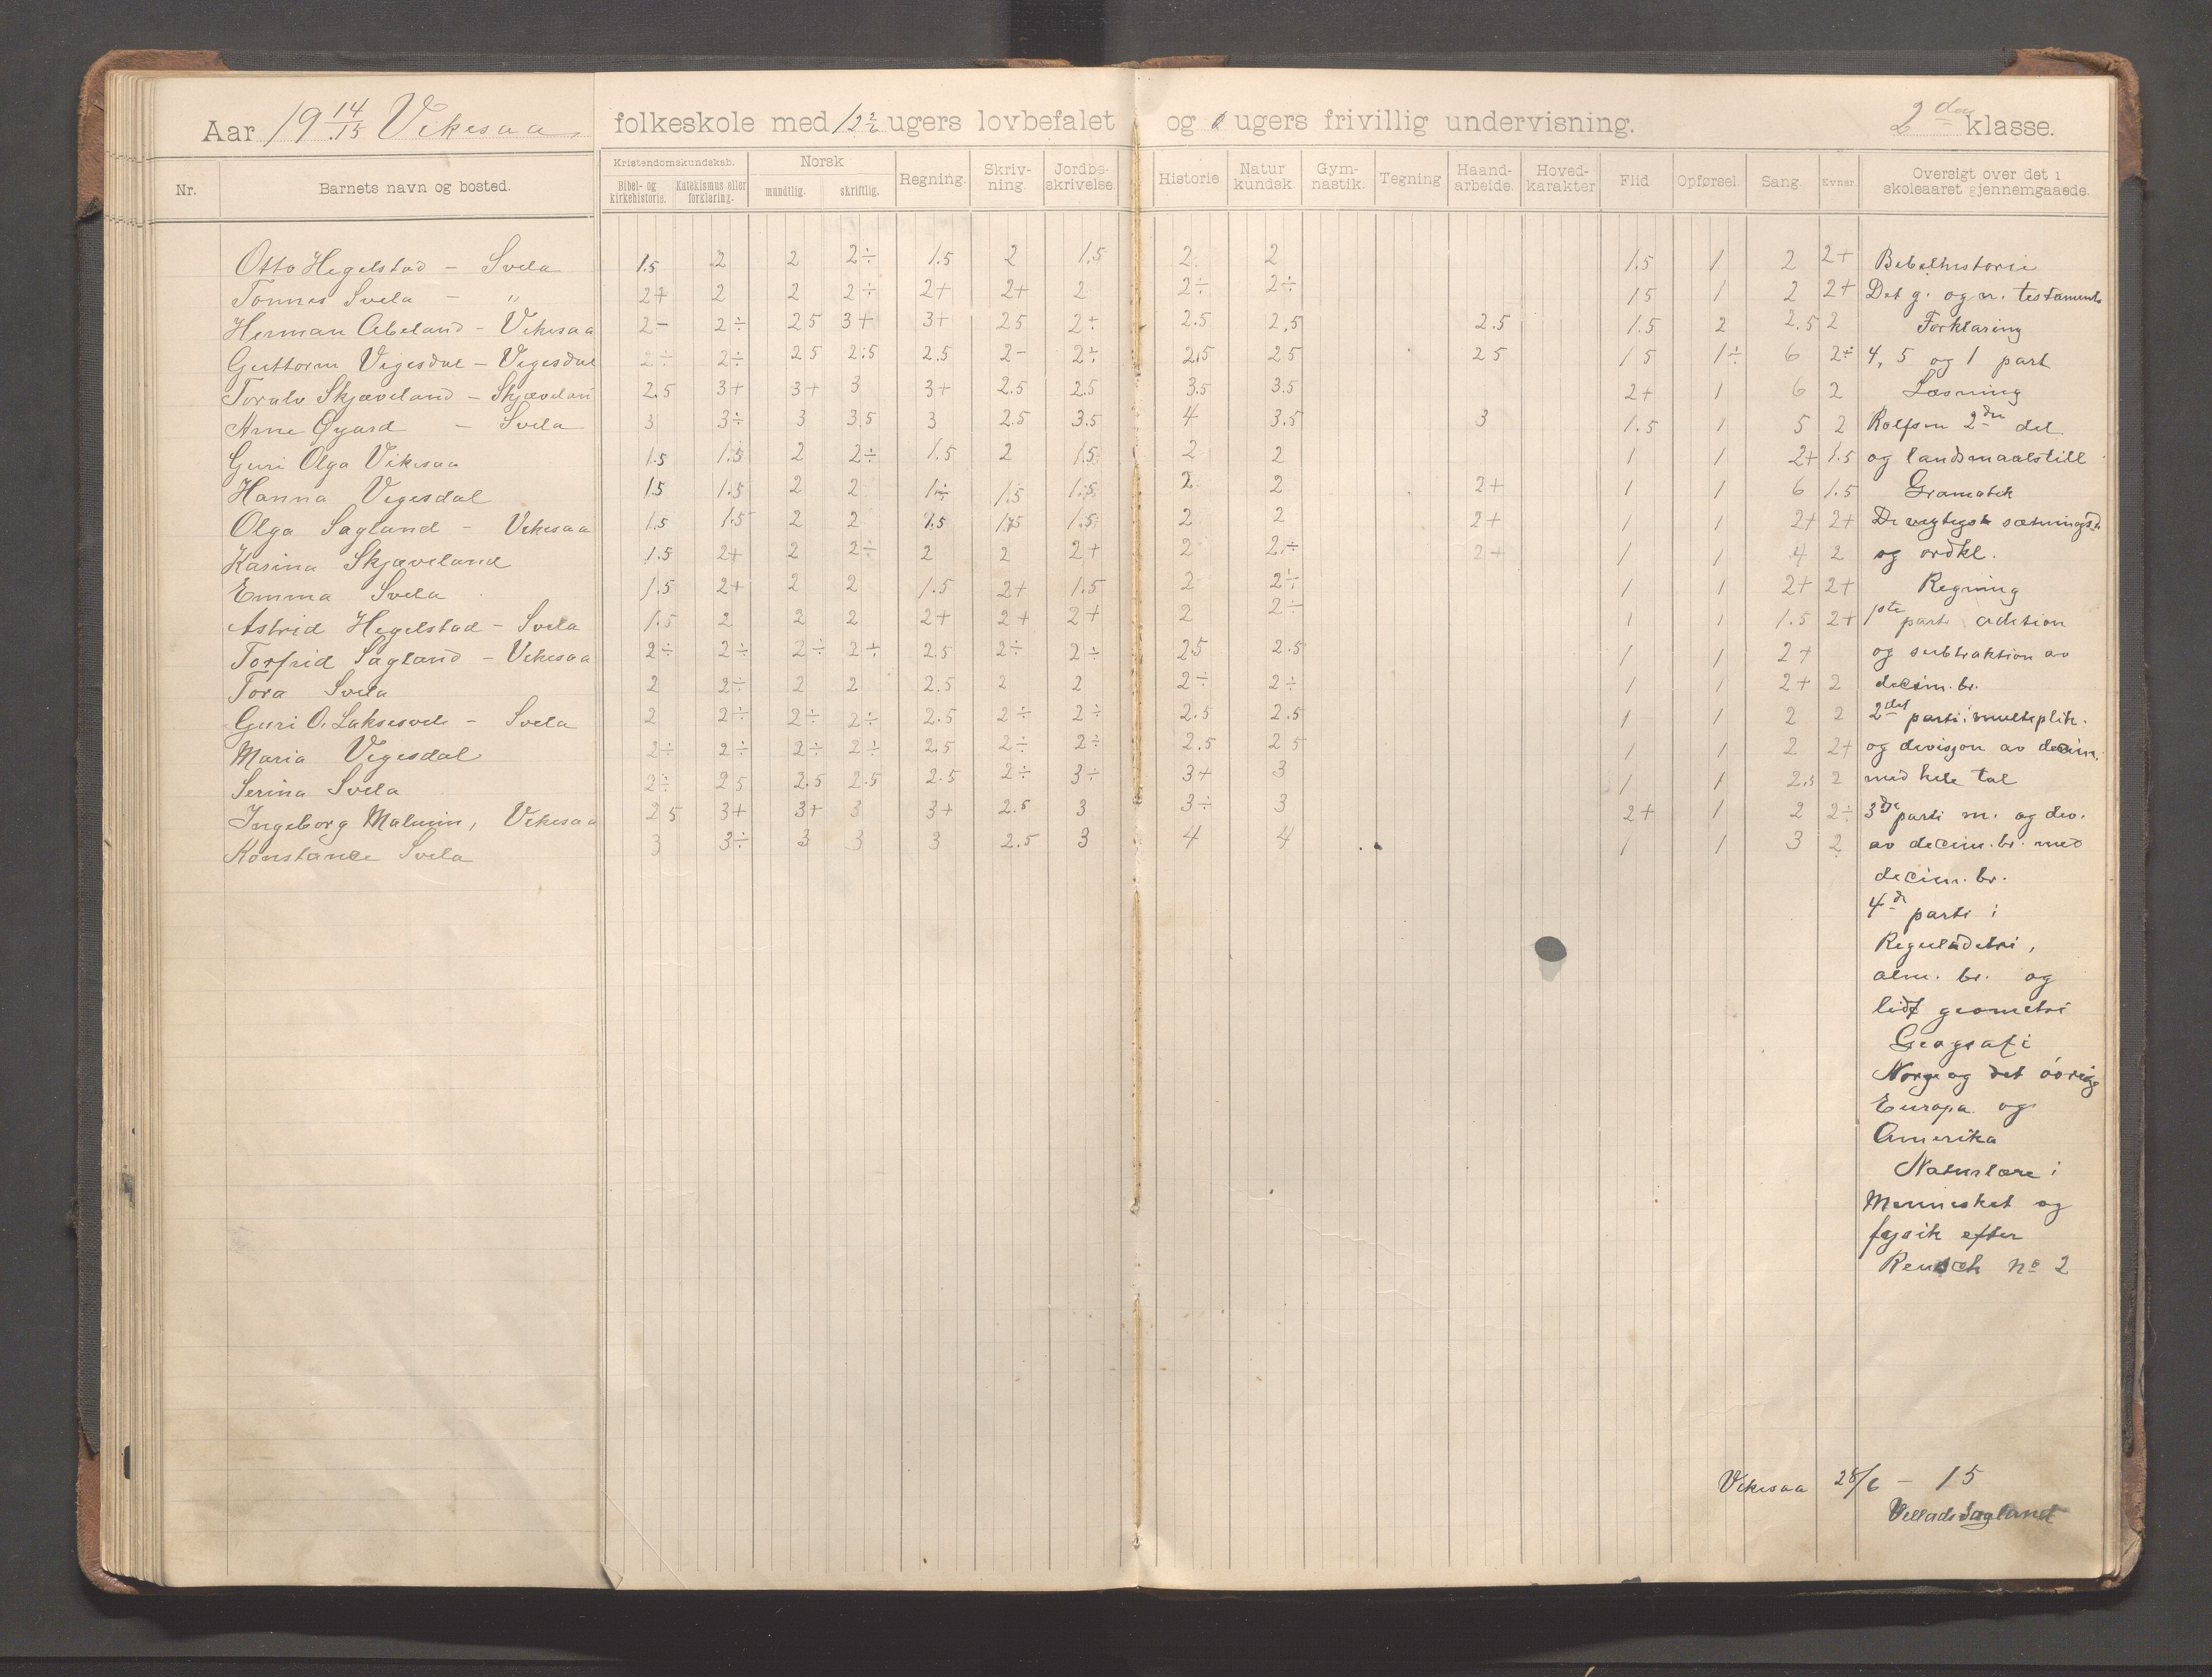 Aar 19 14/15 Vikesaa, folkeskole med 12 2/2 ugers lovbefalet og 0 ugers frivillig undervisning. 2den klasse.
Nr. Barnets navn og bosted. Kristendomskundskab. Bibel- og kirkehistorie. Katekismus eller forklaring. Norsk mundtlig. skriftlig. Regning. Skriv-ning. Jordbe-skrivelse. Historie Natur kundsk. Gym-nastik. Tegning Haand-arbeide. Hoved-karakter Flid Opførsel. Sang. Evner Oversigt over det i skoleaaret gjennemgaaede.
Otto Hegelstad - Svela 1.5 2 2 2÷ 1.5 2 1.5 2 2 1.5 1 2 2+ Bibelhistorie
Tønnes Svela - " 2+ 2 2 2÷ 2+ 2+ 2 2÷ 2÷ 1 5 1 2 2+ Det g. og n. testamente
Herman Abeland - Vikesaa 2- 2÷ 2 5 3+ 3+ 2 5 2÷ 2.5 2.5 2.5 1.5 2 2.5 2 Forklaring
Guttorm Vigesdal - Vigesdal 2÷ 2÷ 2 5 2.5 2.5 2- 2÷ 2.5 2 5 2 5 1 5 1÷ 6 2÷ 4, 5 og 1 part
Toralv Skjæveland - Skjæveland 2.5 3+ 3+ 3 3+ 2.5 2.5 3.5 3.5 2+ 1 6 2 Læsning
Arne Øgard - Svela 3 3÷ 3 3.5 3 2.5 3.5 4 3.5 3 1.5 1 5 2 Rolfsen 2den del
Guri Olga Vikesaa 1.5 1.5 2 2÷ 1.5 2 1.5 2 2 1 1 2+ 1.5 og landsmaalstill
Hanna Vigesdal 1.5 1.5 2 2 1÷ 1.5 1.5 2 2 2+ 1 1 6 1.5 Gramatik
Olga Sagland - Vikesaa 1.5 1.5 2 2 1.5 1.5 1.5 2 2 2+ 1 1 2+ 2+ De vigtigste sætningsd.
Kasina Skjæveland 1.5 2+ 2 2÷ 2 2 2+ 2 2÷ 2+ 1 1 4 2 og ordkl.
Emma Svela 1.5 2+ 2 2 1.5 2+ 1.5 2 2÷ 1 1 2+ 2+ Regning
Astrid Hegelstad - Svela 1.5 2 2 2 2+ 2+ 2+ 2 2÷ 1 1 1.5 2+ 1ste parti adition
Torfrid Sagland - Vikesaa 2÷ 2÷ 2÷ 2÷ 2.5 2÷ 2÷ 2.5 2.5 1 1 2+ og subtraktion av
Tora Svela 2 2÷ 2 2 2.5 2 2 2÷ 2÷ 1 1 2+ 2 decim. br.
Guri O. Laksesvel - Svela 2 2÷ 2÷ 2÷ 2.5 2÷ 2÷ 2.5 2.5 1 1 2 2 2det parti: multeplik.
Maria Vigesdal 2÷ 2÷ 2÷ 2÷ 2.5 2÷ 2÷ 2.5 2 5 1 1 2 2+ og divisjon av decim.
Serina Svela 2÷ 2 5 2.5 2.5 2.5 2÷ 3÷ 3+ 3 1 1 2.5 2 med hele tal
Ingeborg Malmin, Vikesaa 2 5 3+ 3+ 3 3+ 2.5 3 3÷ 3 2+ 1 2 2÷ 3dje parti m. og div.
Konstance Svela 3 3÷ 3 3 3 2.5 3 4 4 1 1 3 2 av decim. br. med
decim. br.
4de parti i
Reguladetri,
alm. br. og
lidt geometri
Geografi
Norge og det øvrige
Europa og
Amerika
Naturlære i
Mennesket og
fysik efter
Rensch no 2
Vikesaa 28/6 - 15
Villads Sagland